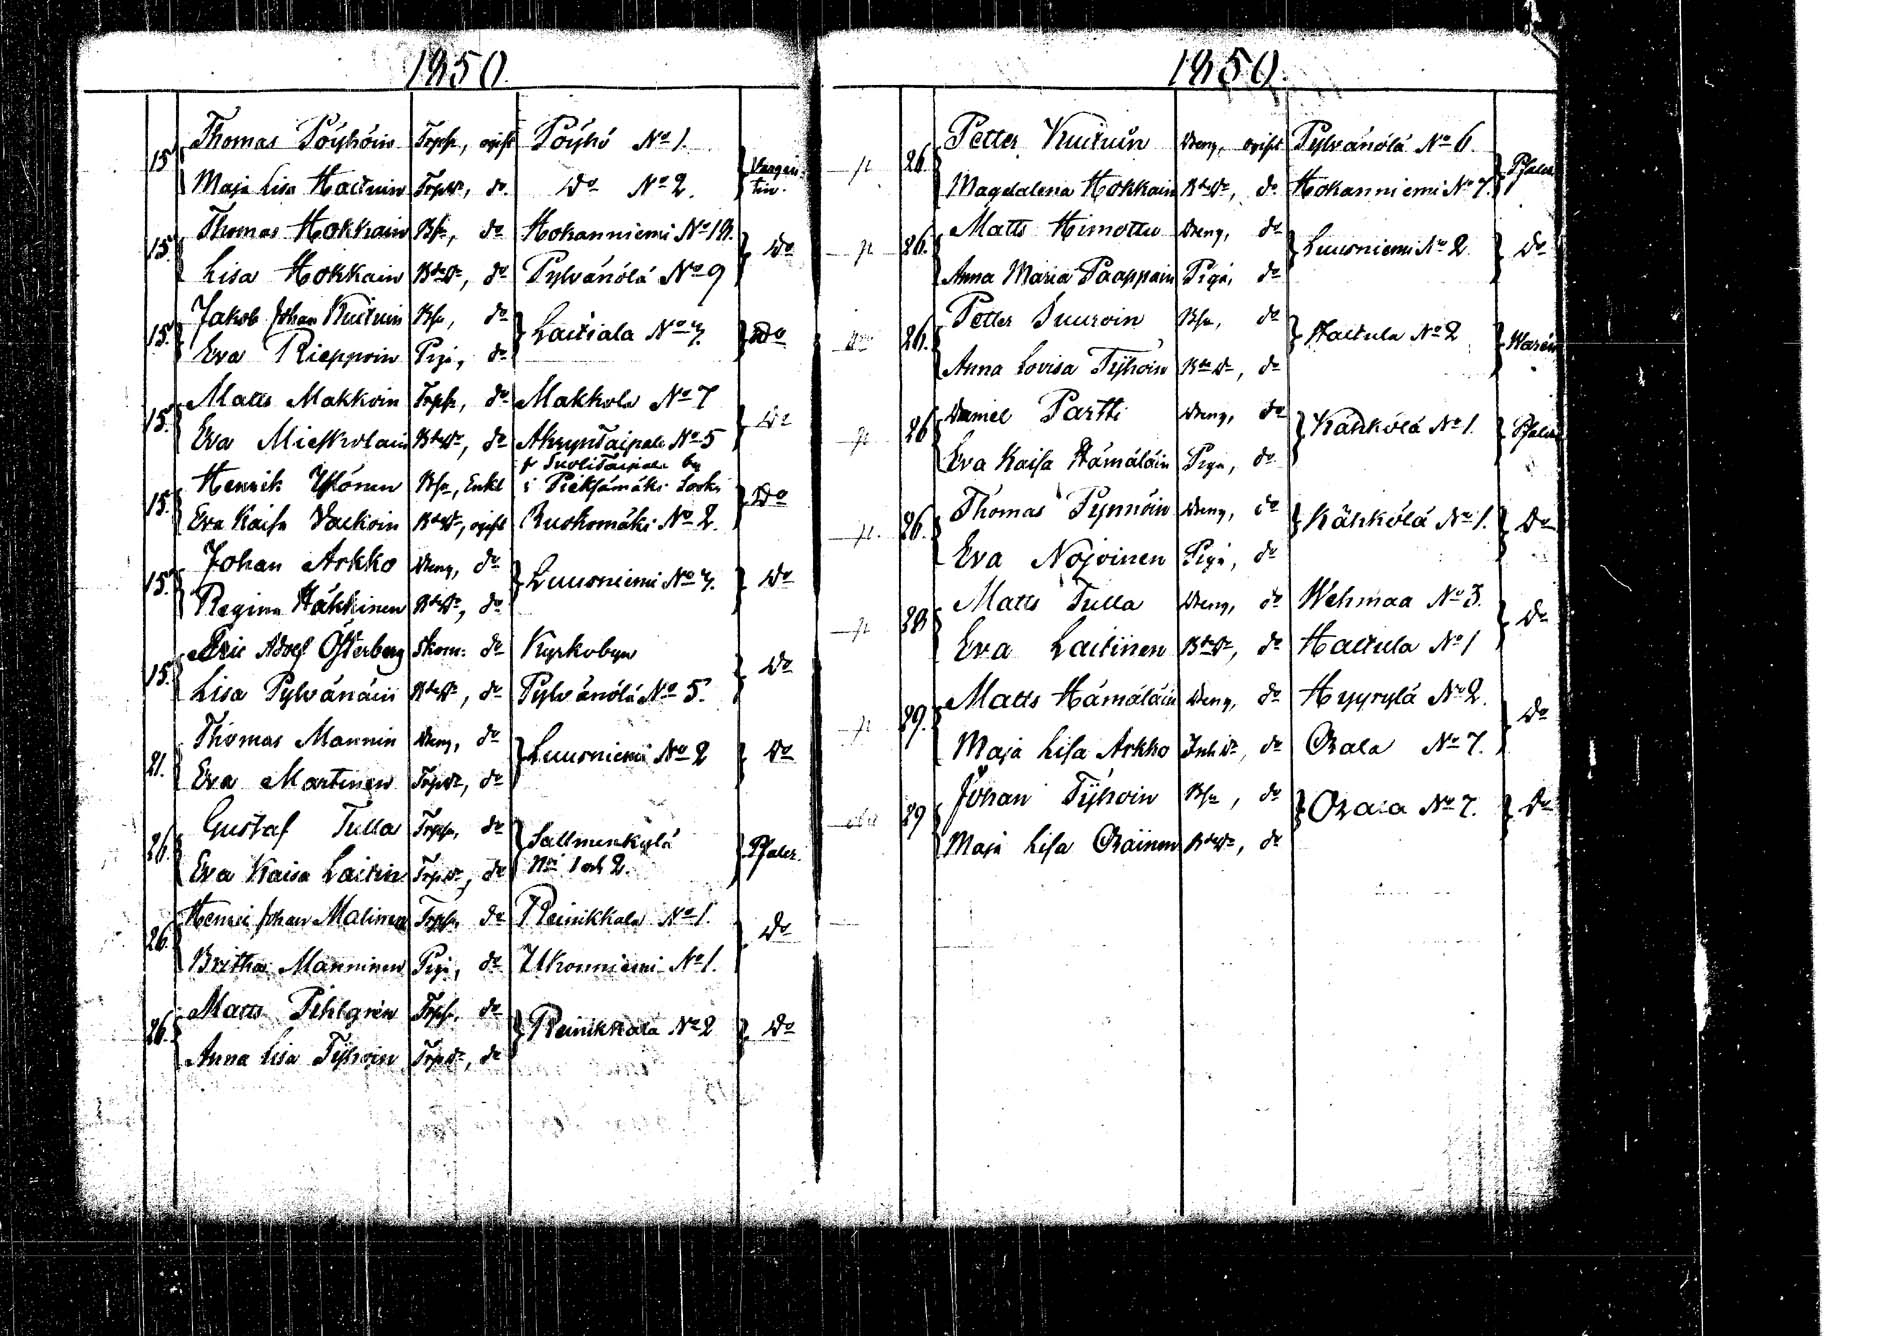 1850.
15 Thomas Pöyhöin Trps, ogift Pöyhö No 1. Vargentin.
Maja Lisa Hactuin TrpDr, do Do No 2.
15. Thomas Hokkain Bs, do Hokanniemi No 18. Do
Lisa Hokkain BdeDr, do Pylvänölä No 9
15. Jakob Johan Kuituin Bs, do Laitiala No 7. Do
Eva Rieppoin Pigi, do
15. Matts Makkoin Trps, do Makkola No 7 Do
Eva Mieskolain BdeDr, do No 5
15. Henrik Bs, Enkl Do
i Pieksämäki Sockn
Eva Kaisa Vauhoin BdeDr, ogift Ruokomäki No 2.
15. Johan Arkko Dreng, do Luusniemi No 7. Do
Regina Häkkinen BdeDr, do
15. Eric Adolf Österberg Skom. do Kyrkobyn Do
Lisa Pylvänäin BdeDr, do Pylvänölä No 5.
21. Thomas Mannin Dreng, do Luusniemi No 2 Do
Eva Martinen TrpDr, do
26. Gustaf Tulla Trps, do Sallmenkylä Pfaler.
No 1 och 2.
Eva Kaisa Laitin TrpDr, do
26. Henric Johan Malinen Trps, do Reinikkala No 1. Do
Britha Manninen Pigi, do Ukonniemi No 1.
26. Matts Pihlgrén Trps, do Reinikkala No 2 Do
Anna Lisa Tyhoin TrpDr, do
1850.
p 26. Petter Kuituin Dreng, ogift Pylvänölä No 6. Pfaler
Magdalena Hokkain BdeDr, do Hokanniemi No 7.
p 26. Matts Himottu Dreng, do Luusniemi No 2. Do
Anna Maria Paappain Piga, do
26. Petter Suuroin Bs, do Hactula No 2
Anna Lovisa Tyhoin BdeDr, do
p 26 Daniel Partti Dreng, do Kähkölä No 1. Pfaler
Eva Kaisa Hämäläin Piga, do
p. 26. Thomas Pynnöin Dreng, do Kähkölä No 1. Do
Eva Nojoinen Piga, do
p 28 Matts Tulla Dreng, do Wehmaa No 3. Do
Eva Laitinen BdeDr, do Hactula No 1
p 29. Matts Hämäläin Dreng, do Hyyrylä No 2. Do
Maja Lisa Arkko InhDr, do Orala No 7.
29 Johan Tyhoin Bs, do Orala No 7. Do
Maja Lisa Orainen BdeDr, do